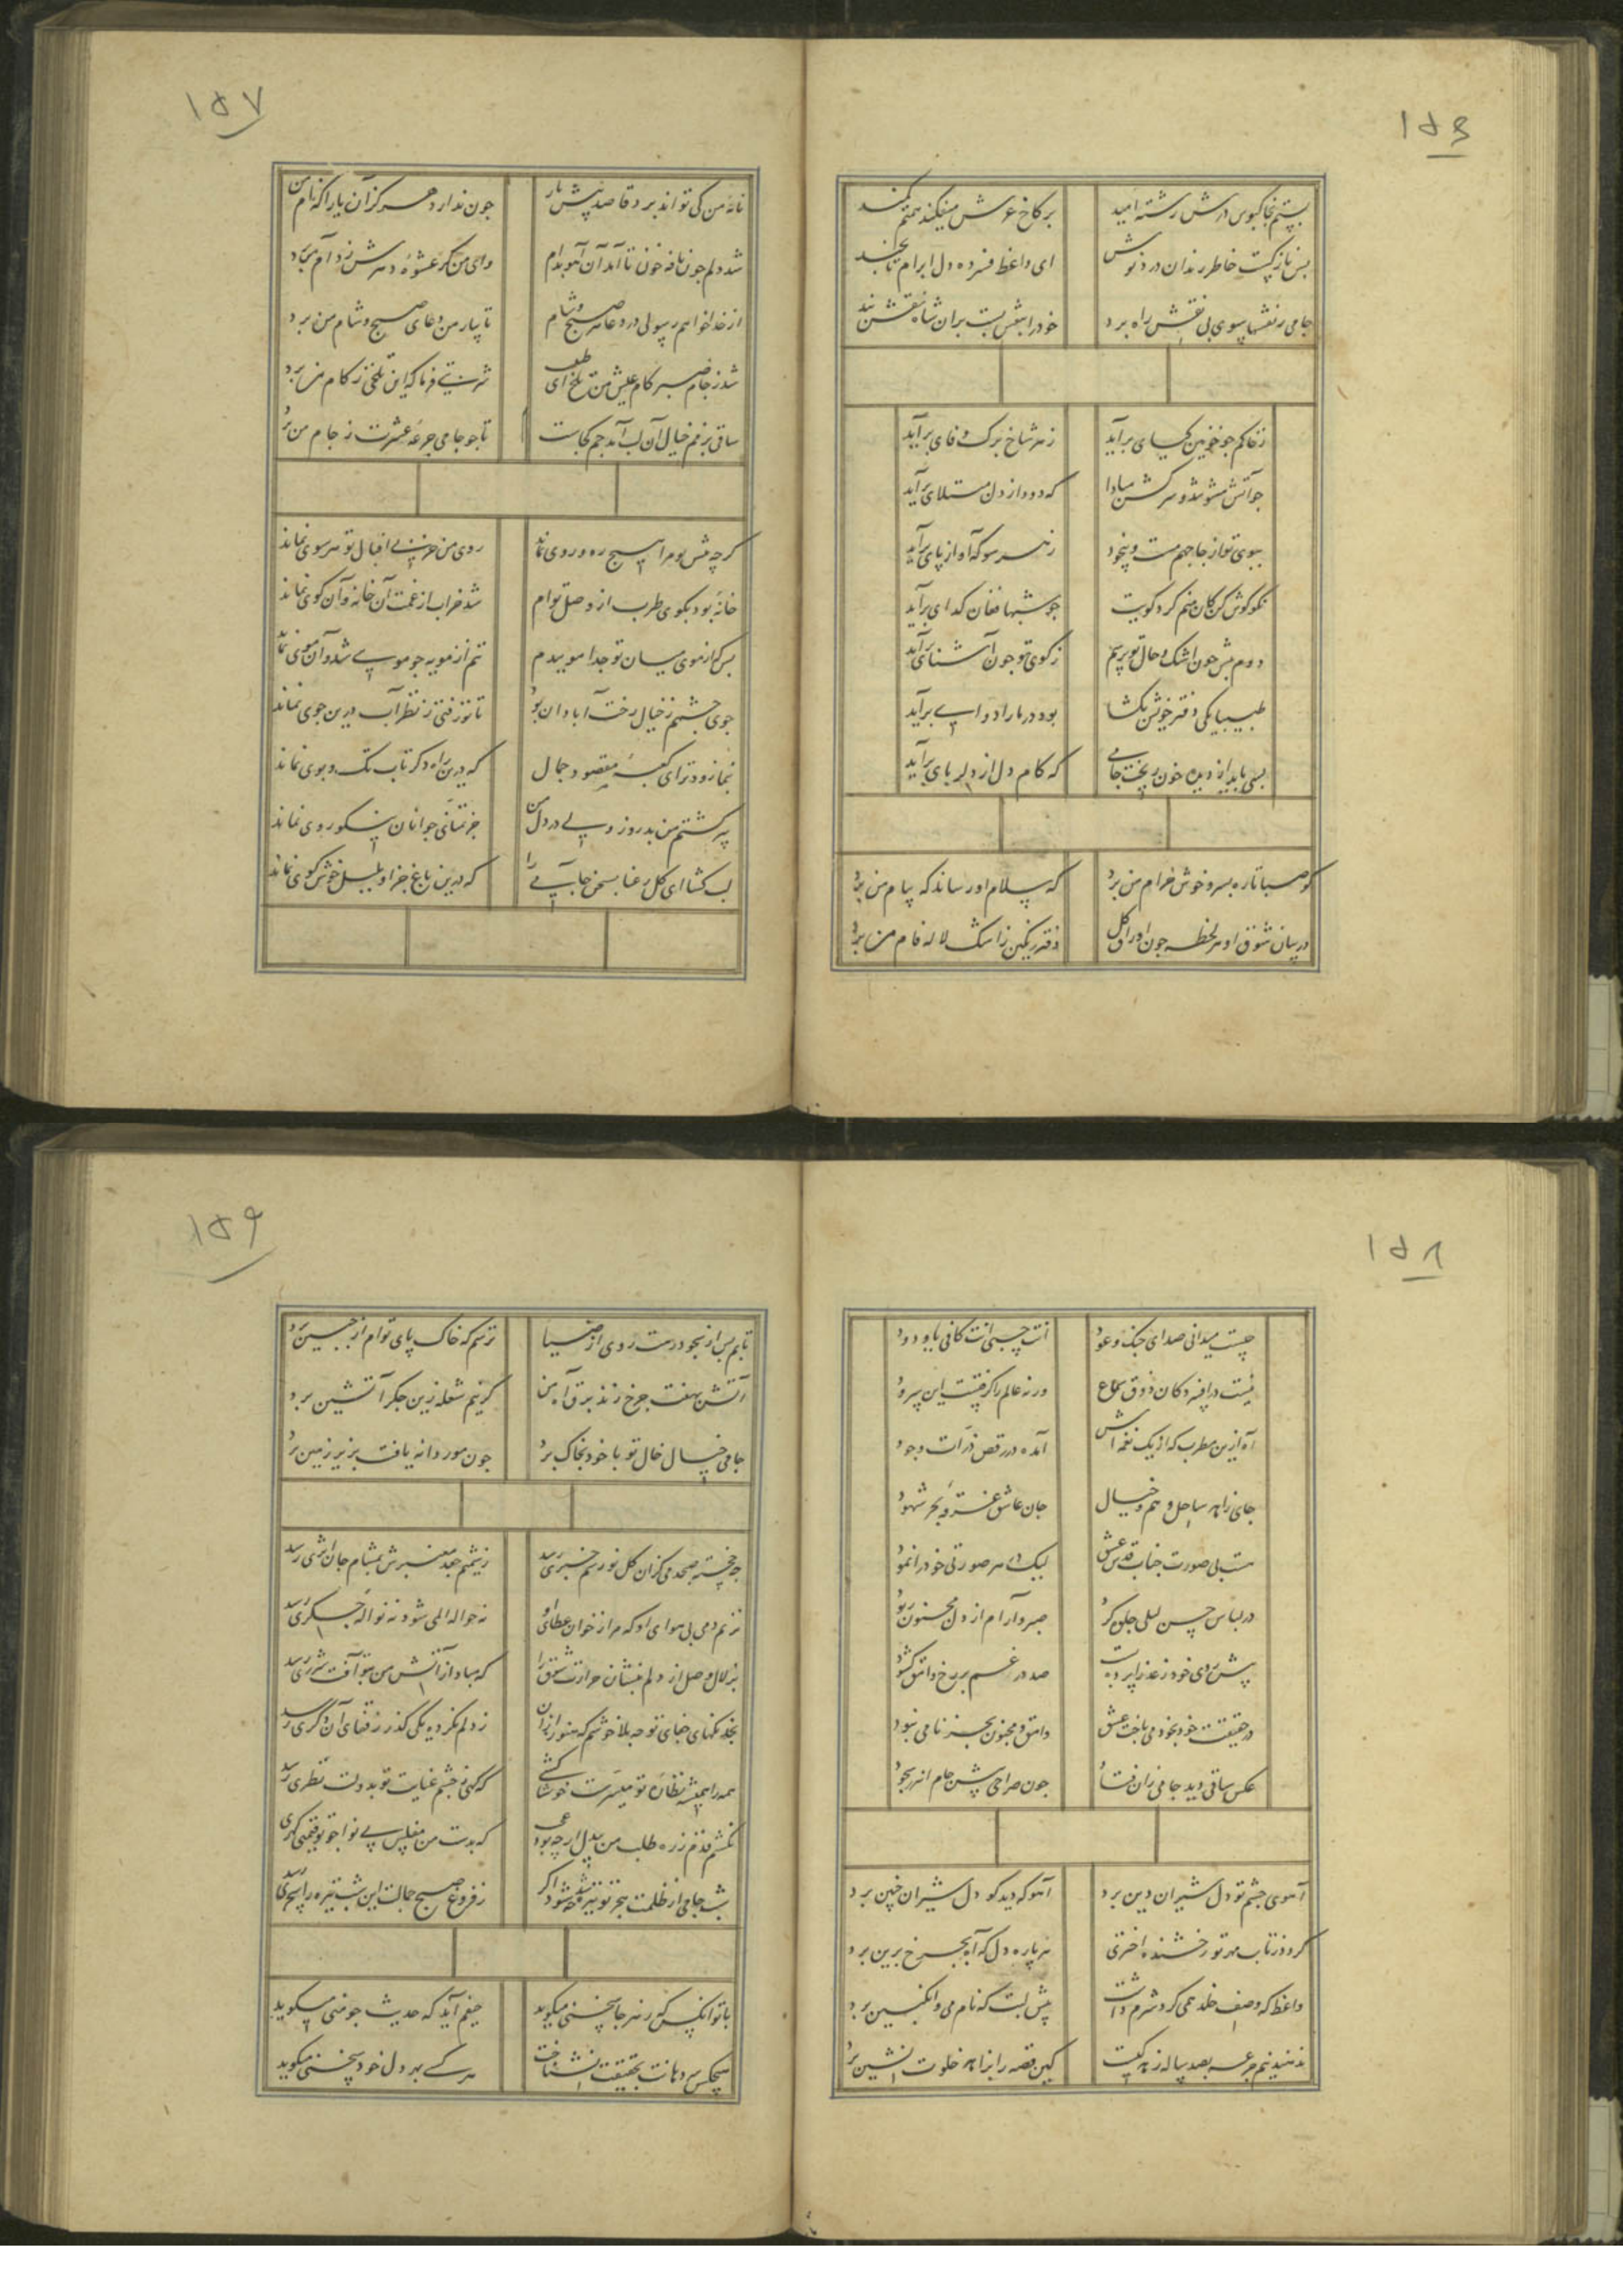 ۱۵۶
بستم بخاکبوس درش رشته امید
بر کاخ عرش میفکند همتم کمند
بس نازکست خاطر رندان دردنوش
ای واعظ فسرده دل ابرام تا بچند
جامی ز نقشها بسوی بی نقش راه برد
خود را بنقش بست بران شاه نقشبند
ز خاکم چو خونین گیای برآید
ز هر شاخ برگ وفای برآید
چو آتش مشو تند و سرکش مبادا
که دود از دل مبتلای برآید
ببوی تو از جا جهم مست و بیخود
ز هر سو که آواز پای برآید
نکو گوش کن کان منم گرد کویت
چو شبها فغان گدای برآید
دوم پیش چون اشک و حال تو پرسم
ز کوی تو چون آشنای برآید
طبیبا یکی دفتر خویش بگشا
بود درد ما را دوایی برآید
بسی باید از دیده خون ریخت جامی
که کام دل از دلربای برآید
کو صبا تا ره بسرو خوش خرام من برد
که سلام او رساند که پیام من برد
در بیان شوق او هر لحظه چون اوراق گل
دفتر رنگین ز اشک لاله فام من برد
۱۵۷
نامه من کی تواند برد قاصد پیش یار
چون ندارد هرگز آن یارا که نام من برد
شد دلم چون نافه خون تا آمد آن آهو بدام
وای من گر عشوه دهرش ز دام من برد
از خدا خواهم رسولی در دعا هر صبح و شام
تا بیار من دعای صبح و شام من برد
شد ز جام صبر کام عیش من تلخ ای طبیب
شربتی فرما که این تلخی ز کام من برد
ساقی بزمم خیال آن لب آمد جم کجاست
تا چو جامی جرعه عشرت ز جام من برد
گرچه پیش بودم را هیچ ره و روی نماند
روی من جز بی اقبال تو هر سوی نماند
خانه بود بکوی طرب از وصل توام
شد خراب از غمت آن خانه و آن کوی نماند
بس که از موی میان تو جدا موییدم
تنم از مویه چو مویی شد و آن موی نماند
جوی چشمم ز خیال رخت آبادان بود
تا تو رفتی ز نظر آب درین جوی نماند
بنما زودتر ای کعبه مقصود جمال
که درین راه دگر تاب تک و پوی نماند
پیر گشتم من بدروز ولی در دل من
جز تمنای جوانان نکو روی نماند
لب گشا ای گل رعنا بسخن جامی را
که درین باغ جز او بلبل خوش گوی نماند
۱۵۸
چیست میدانی صدای چنگ و عود
انت حسبی انت کافی یا ودود
نیست در افسردگان ذوق سماع
ورنه عالم را گرفتست این سرود
آه ازین مطرب که از یک نغمه اش
آمده در رقص ذرات وجود
جای زاهد ساحل وهم و خیال
جان عاشق غرقه بحر شهود
هست بی صورت جناب قدس عشق
لیک در هر صورتی خود را نمود
در لباس حسن لیلی جلوه کرد
صبر و آرام از دل مجنون ربود
پیش روی خود ز عذرا پرده بست
صد در غم بر رخ وامق گشود
در حقیقت خود بخود می باخت عشق
وامق و مجنون بجز نامی نبود
عکس ساقی دید جامی زان فتاد
چون صراحی پیش جام اندر سجود
آهوی چشم تو دل شیران دین برد
آهو که دید کو دل شیران چنین برد
گردد ز تاب مهر تو رخشنده اختری
هر پاره دل که آه بچرخ برین برد
واعظ که وصف خلد همی کرد شرم داشت
پیش لبت که نام می و انگبین برد
ندهند نیم جرعه بصد ساله زهد کیست
کین قصه را بزاهد خلوت نشین برد
۱۵۹
تابم پس از سجود درت روی از ضیا
ترسم که خاک پای توام از جبین برد
آتش بهفت چرخ زند برق آه من
گر نیم شعله زین جگر آتشین برد
جامی خیال خال تو با خود بخاک برد
چون مور دانه یافت بزیر زمین برد
چه خجسته صبحدمی کزان گل نورسم خبری رسد
ز شمیم جعد معنبرش بمشام جان اثری رسد
نزنم دمی بی هوای او که مرا ز خوان عطای او
نه حواله المی شود نه نواله جگری رسد
بزلال وصل از دلم بنشان حرارت شوق را
که مباد از آتش من بتو آفت شرری رسد
بخدنگهای جفای تو چه بلا خوشم که هنوز ازان
ز دلم نکرده یکی گذر ز قفای آن دگری رسد
همه را همیشه نظاره تو میسرست خوشا کسی
که گهی ز چشم عنایت تو بدولت نظری رسد
نکشم قدم ز ره طلب من بیدل ارچه بود عجب
که بدست من مفلس بی نوا چو تو قیمتی گهری رسد
شب جامی از ظلمت هجر تو تیره شد چه شود اگر
ز فروغ صبح جمالت این شب تیره را سحری رسد
با تو آنکس که ز هر جا سخنی میگوید
حیفم آید که حدیث چو منی میگوید
هیچکس سر دهانت بحقیقت نشناخت
هر کسی بهر دل خود سخنی میگوید